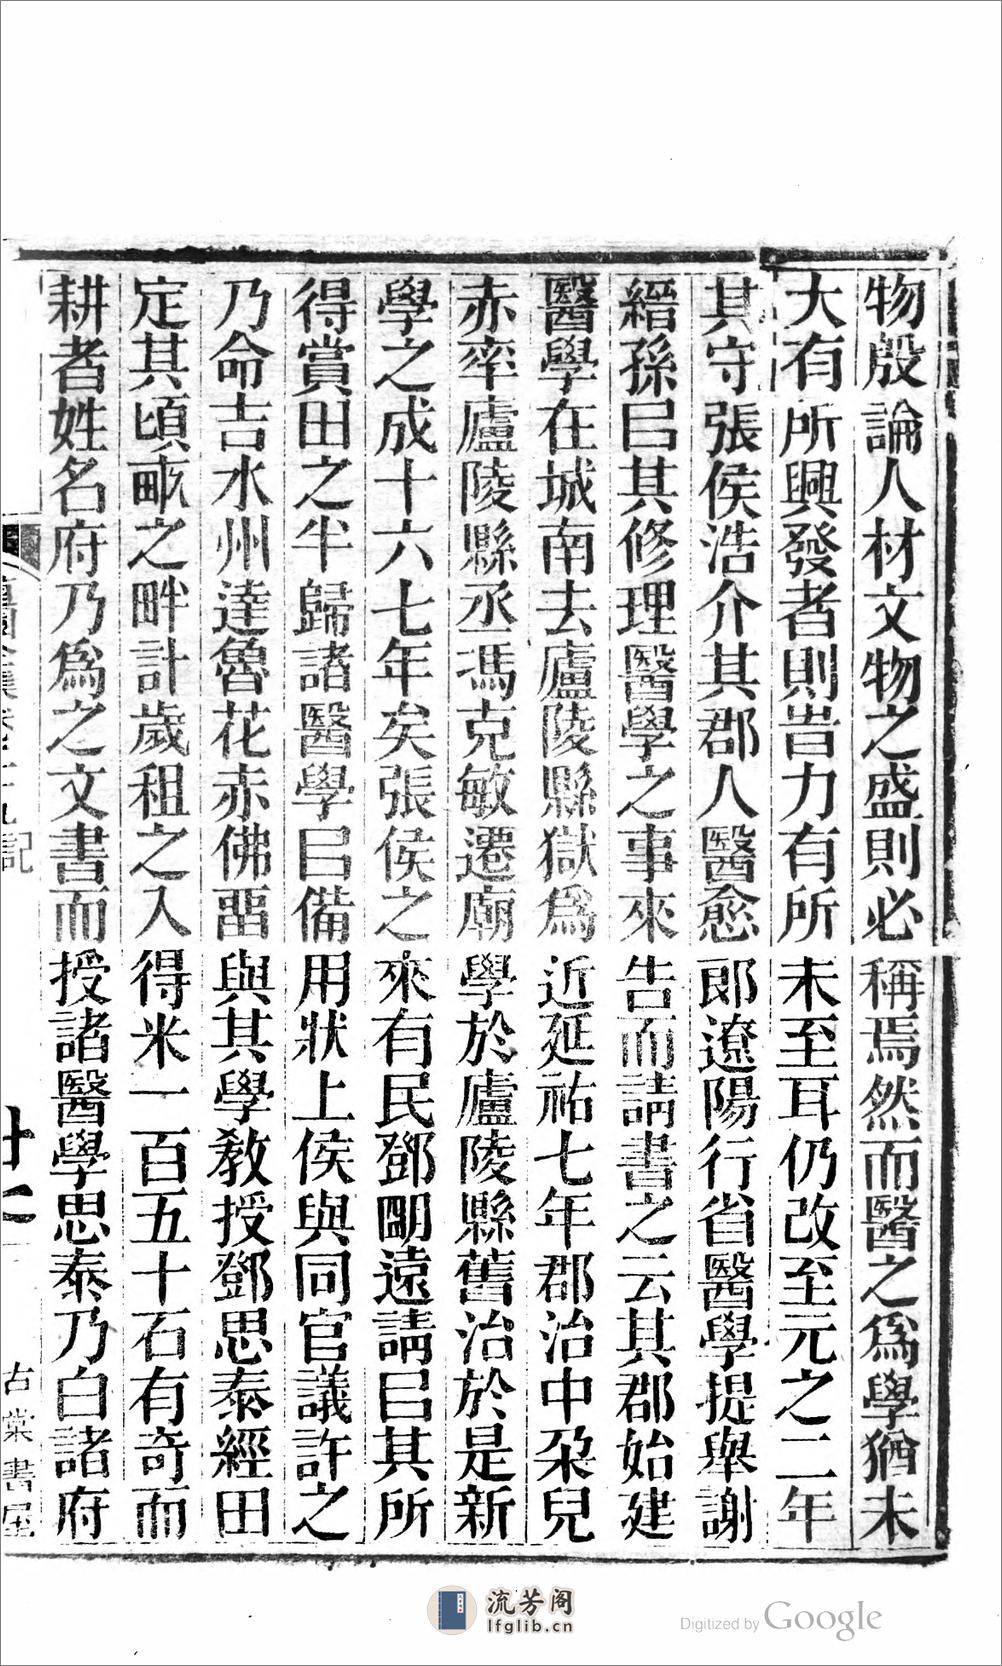 物殷論人材文物之盛則必稱焉然而醫之爲學猶未
大有所興發者則豈力有所未至耳仍改至元之二年
其守張侯浩介其郡人醫愈郎遼陽行省醫學提舉謝
縉孫㠯其修理醫學之事來告而請書之云其郡始建
醫學在城南去廬陵縣獄爲近延祐七年郡治中朶兒
赤率廬陵縣丞馮克敏遷廟學於廬陵縣舊治於是新
學之成十六七年矣張侯之來有民鄧明遠請㠯其所
得賞田之半歸諸醫學㠯備用狀上侯與同官議許之
乃命吉水州達魯花赤佛畱與其學教授鄧思泰經田
定其頃畝之畔計歲租之入得米一百五十石有奇而
耕者姓名府乃爲之文書而授諸醫學思泰乃白諸府
記
古棠書屋
流芳阁
lfglib.cn
Digitized by Google